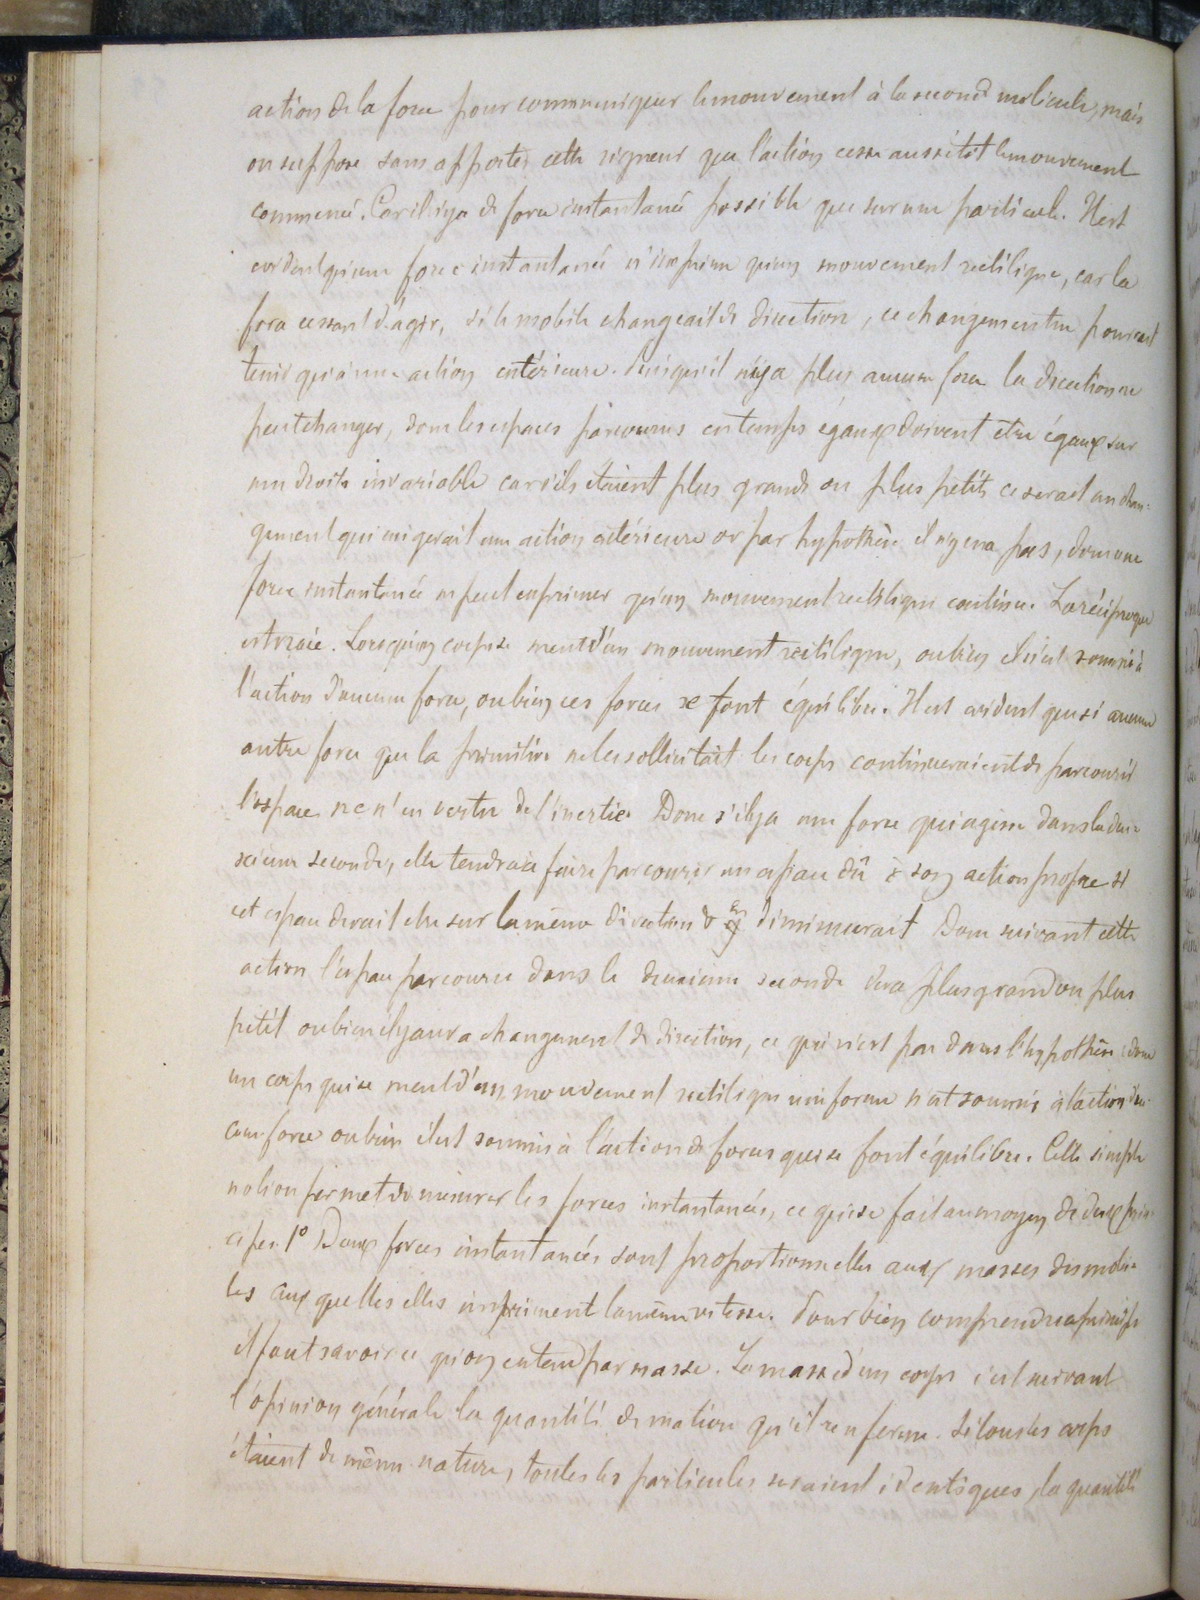 action de la force pour communiquer le mouvement à la seconde molécule, mais
on suppose sans apporter cette rigueur que l'action cesse aussitôt le mouvement
commencé. Car il n'y a de force instantanée possible que sur une particule. Il est
évident qu'une force instantanée n'imprime qu'un mouvement rectiligne, car la
force cessant d'agir, si le mobile changeait de direction, ce changement ne pourrait
tenir qu'à une action extérieure. Puisqu'il n'y a plus aucune force la direction ne
peut changer, donc les espaces parcourus en temps égaux doivent etre égaux sur
une droite invariable car s'ils étaient plus grands ou plus petits ce serait un chan-
gement qui exigerait une action extérieure or par hypothèse il n'y en a pas, donc une
force instantanée ne peut imprimer qu'un mouvement rectiligne continu. La réciproque
est vraie. Lorsqu'un corps se meut d'un mouvement rectiligne, ou bien il n'est soumis à
l'action d'aucune force, ou bien ces forces se font équilibre. Il est évident que si aucune
autre force que la primitive ne les sollicitait les corps continueraient de parcourir
l'espace en vertu de l'inertie. Donc s'il y a une force qui agisse dans la deu-
xième seconde, elle tendra à faire parcourir un espace dû à son action propre si
cet espace devait etre sur la même direction diminuerait Donc suivant cette
action l'espace parcouru dans la deuxieme seconde sera plus grand ou plus
petit ou bien il y aura changement de direction, ce qui n'est pas dans l'hypothèse donc
un corps qui se meut d'un mouvement rectiligne uniforme n'est soumis à l'action d'au-
cune force ou bien il est soumis à l'action de forces qui se font équilibre. Cette simple
notion permet de mesurer les forces instantanées, ce qui se fait au moyen de deux prin-
cipes. 1° Deux forces instantanées sont proportionnelles aux masses des mobi-
les aux quelles elles impriment la même vitesse. Pour bien comprendre ce principe
il faut savoir ce qu'on entend par masse. La masse d'un corps c'est suivant
l'opinion générale la quantité de matière qu'il renferme. Si tous les corps
étaient de même nature, toutes les particules seraient identiques, la quantité